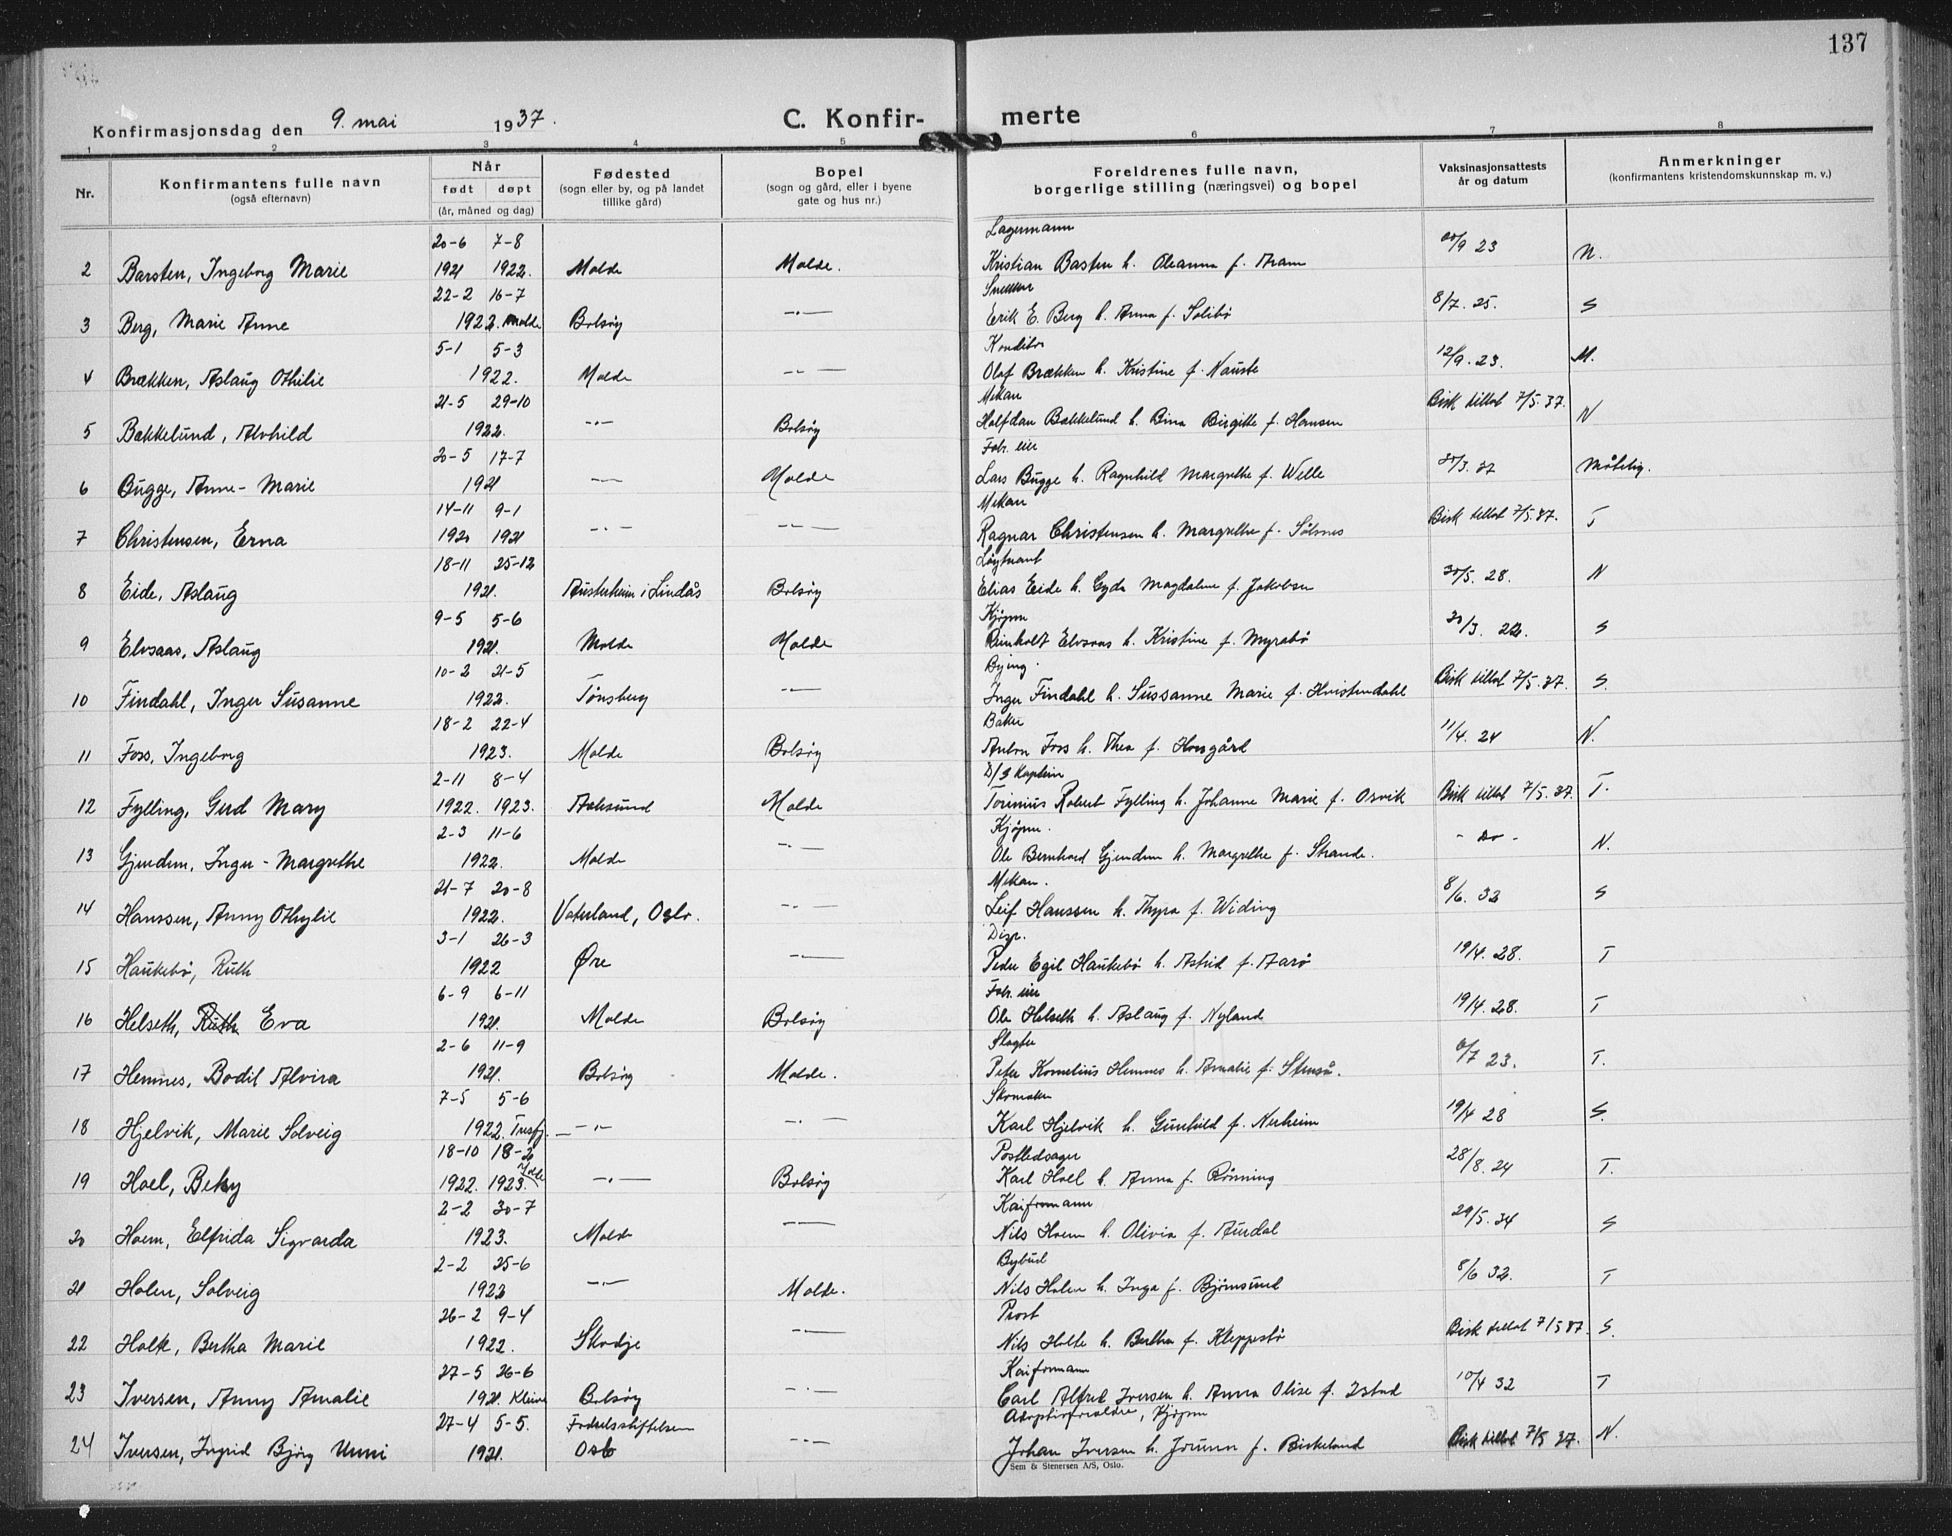 137
Konfirmasjonsdag den 9. mai 1937.
C. Konfir- merte
1 2 3 4 5 6 7 8
Nr.
Konfirmantens fulle navn
(også efternavn)
Når
født døpt
(år, måned og dag)
Fødested
(sogn eller by, og på landet
tillike gård)
Bopel
(sogn og gård, eller i byene
gate og hus nr.)
Foreldrenes fulle navn,
borgerlige stilling (næringsvei) og bopel
Vaksinasjonsattests
år og datum
Anmerkninger
(konfirmantens kristendomskunnskap m. v.)
20-6 7-8 Lagermann
2 Barsten, Ingeborg Marie 1921 1922. Molde Molde. Kristian Basten h. Oleanna f. Aram /9 23 N.
22-2 16-7 Snekker
3 Berg, Marie Anne 1922. Molde Bolsøy -"- Erik E. Berg h. Anna f. Solibø 8/7. 25. S
5-1 5-3 Konditor
4 Brækken, Aslaug Othilie 1922. Molde -"- Olaf Brækken h. Kristine f. Nauste 12/9. 23. M.
21-5 29-10 Mekan
5 Bækkelund, Alvhild 1922. -"- Bolsøy Halfdan Bækkelund h. Bina Birgitte f. Hansen Bisk tillat 7/5.37. N
20-5 17-7 Fabr. eier
6 Bugge, Anne-Marie 1921 -"- Molde Lars Bugge h. Ragnhild Margrethe f. Welle /3. 37 Måtelig.
14-11 9-1 Mekan
7 Christensen, Erna 1920 1921 -"- -"- Ragnar Christensen h. Margrethe f. Sølsnes Bisk tillat 7/5.37. T
18-11 25-12 Løytnant
8 Eide, Aslaug 1921. Austerheim i Lindås Bolsøy Elias Eide h. Gyda Magdalene f. Jakobsen 30/5. 28. N
9-5 5-6 Kjøpm
9 Elvsaas, Aslaug 1921. Molde Molde Reinholt Elvsaas h. Kristine f. Myrabø 30/3. 22. S
10-2 21-5 Bying.
10 Findahl, Inger Susanne 1922. Tønsberg -"- Inger Findahl h. Sussanne Marie f. Hvistendahl Bisk tillat 7/5.37. S.
18-2 22-4 Baker
11 Foss, Ingeborg 1923. Molde Bolsøy Anton Foss h. Thea f. Horsgård 11/4. 24 N.
2-11 8-4 D/S Kaptein
12 Fylling, Gerd Mary 1922. 1923. Aalesund Molde Torinius Robert Fylling h. Johanne Marie f. Orvik Bisk tillat 7/5.37. T.
2-3 11-6 Kjøpm.
13 Gjendem, Inger-Margrethe 1922. Molde -"- Ole Bernhard Gjendem h. Margrethe f. Strande. - Do - N.
21-7 20-8 Mekan.
14 Hanssen, Anny Othylie 1922. Vaterland, Oslo. -"- Leif Hanssen h. Thyra f. Widing 8/6. 32 S
3-1 26-3 Disp.
15 Haukebø, Ruth 1922 Øre -"- Peder Egil Haukebø h. Astrid f. Aarø 19/4. 28. T
6-9 6-11 Fabr. eier
16 Helseth, Ruth Eva 1921. Molde Bolsøy Ole Helseth h. Aslaug f. Nyland 19/4. 28. T
2-6 11-9 Slagter
17 Hemnes, Bodil Alvira 1921. Bolsøy Molde. Peter Kornelius Hemnes h. Amalie f. Stenså. 6/7 23. T.
7-5 5-6 Skomaker
18 Hjelvik, Marie Solveig 1922. Tresfj. -"- -"- Karl Hjelvik h. Gunhild f. Nerheim 19/4 28 S.
18-10 18-2 Postledsager
19 Hoel, Betsy 1922. 1923. -"- Bolsøy Karl Hoel h. Anna f. Rønning 28/8. 24 T.
2-2 30-7 Kaiformann
20 Hoem, Elfrida Sigvarda 1923. Molde -"- Nils Hoem h. Olivia f. Aurdal 29/5. 34 S
2-2 25-6 Bybud
21 Holen, Solveig 1922 -"- Molde. Nils Holen h. Inga f. Bjørnsund 8/6 32. T
26-2 9-4 Prost
22 Holte, Bertha Marie 1922. Skodje -"- Nils Holte h. Bertha f. Kleppestø Bisk tillat 7/5 37. S.
27-5 26-6 Kaiformann
23 Iversen, Anny Amalie 1921. Kleive Bolsøy -"- Carl Alfred Iversen h. Anna Olise f. Istad 10/4 32 T
27-4 5-5. Fødselsstiftelsen Adoptivforeldre, Kjøpm
24 Iversen, Ingrid Bjørg Unni 1921. Oslo -"- Johan Iversen h. Jorunn f. Birkeland Bisk tillat 7/5 37. N.
Sem & Stenersen A/S, Oslo.